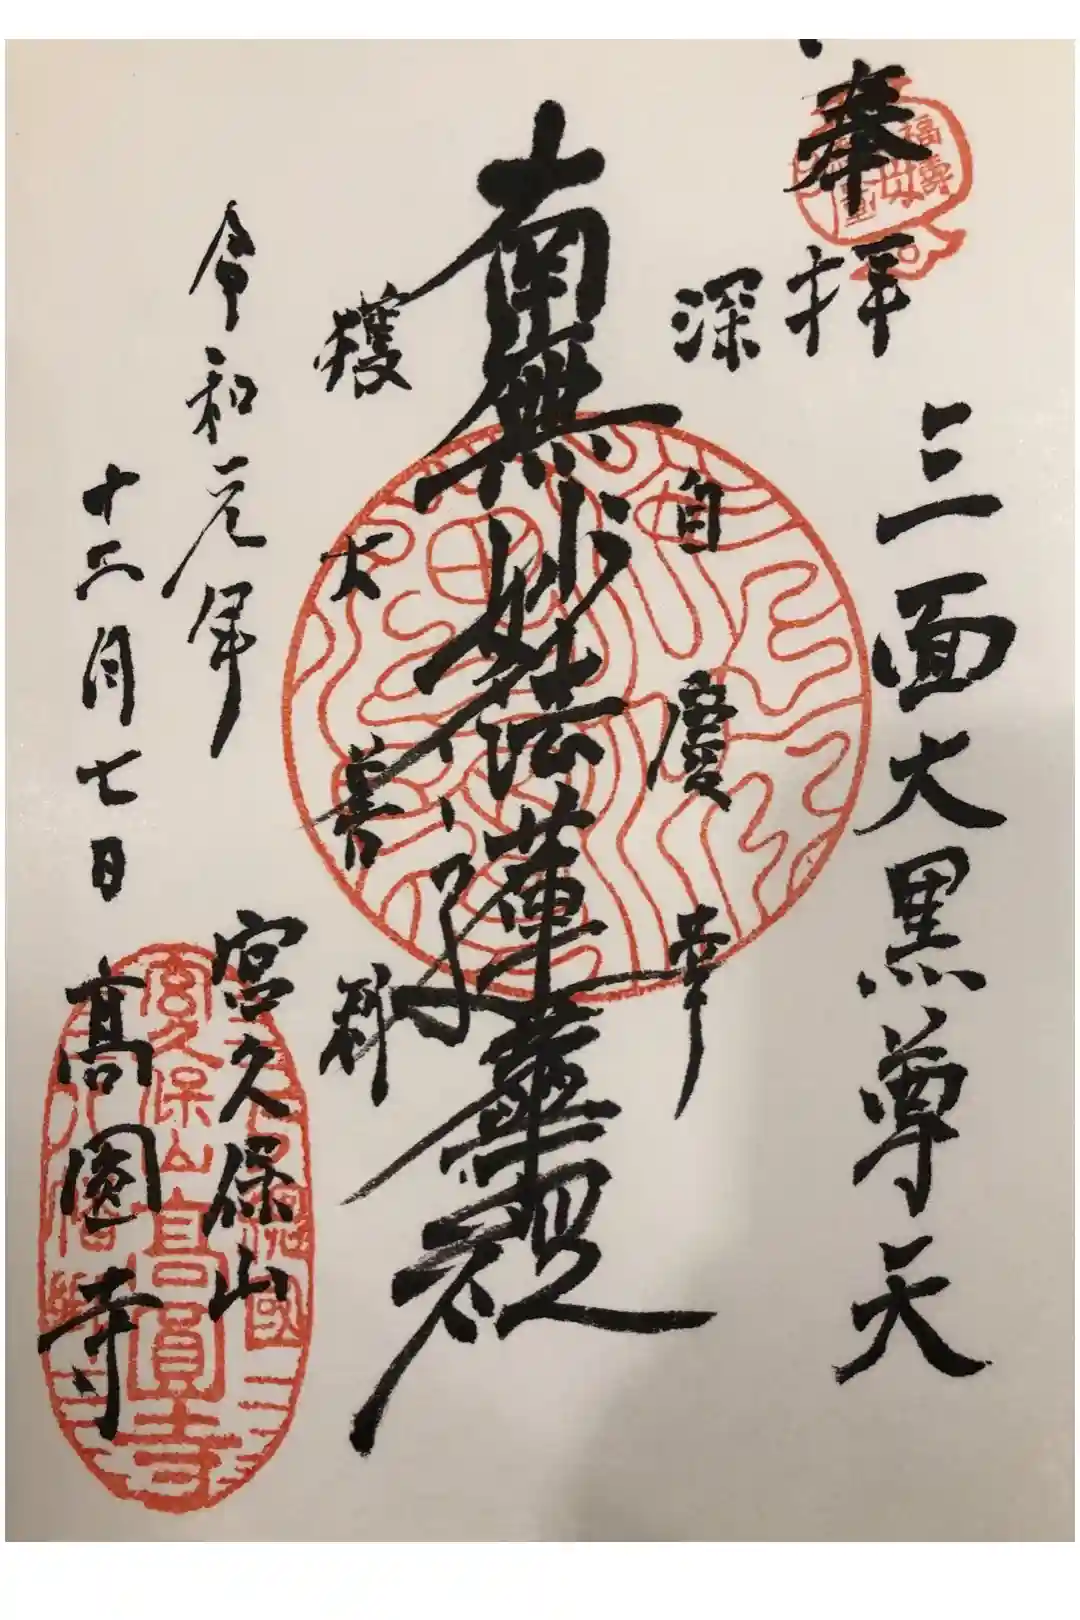 奉拝
三面大黒尊天
深自慶幸
南無妙法蓮華経
獲大善利
令和元年
十二月七日
宮久保山
高圓寺
福壽
久保山高圓寺